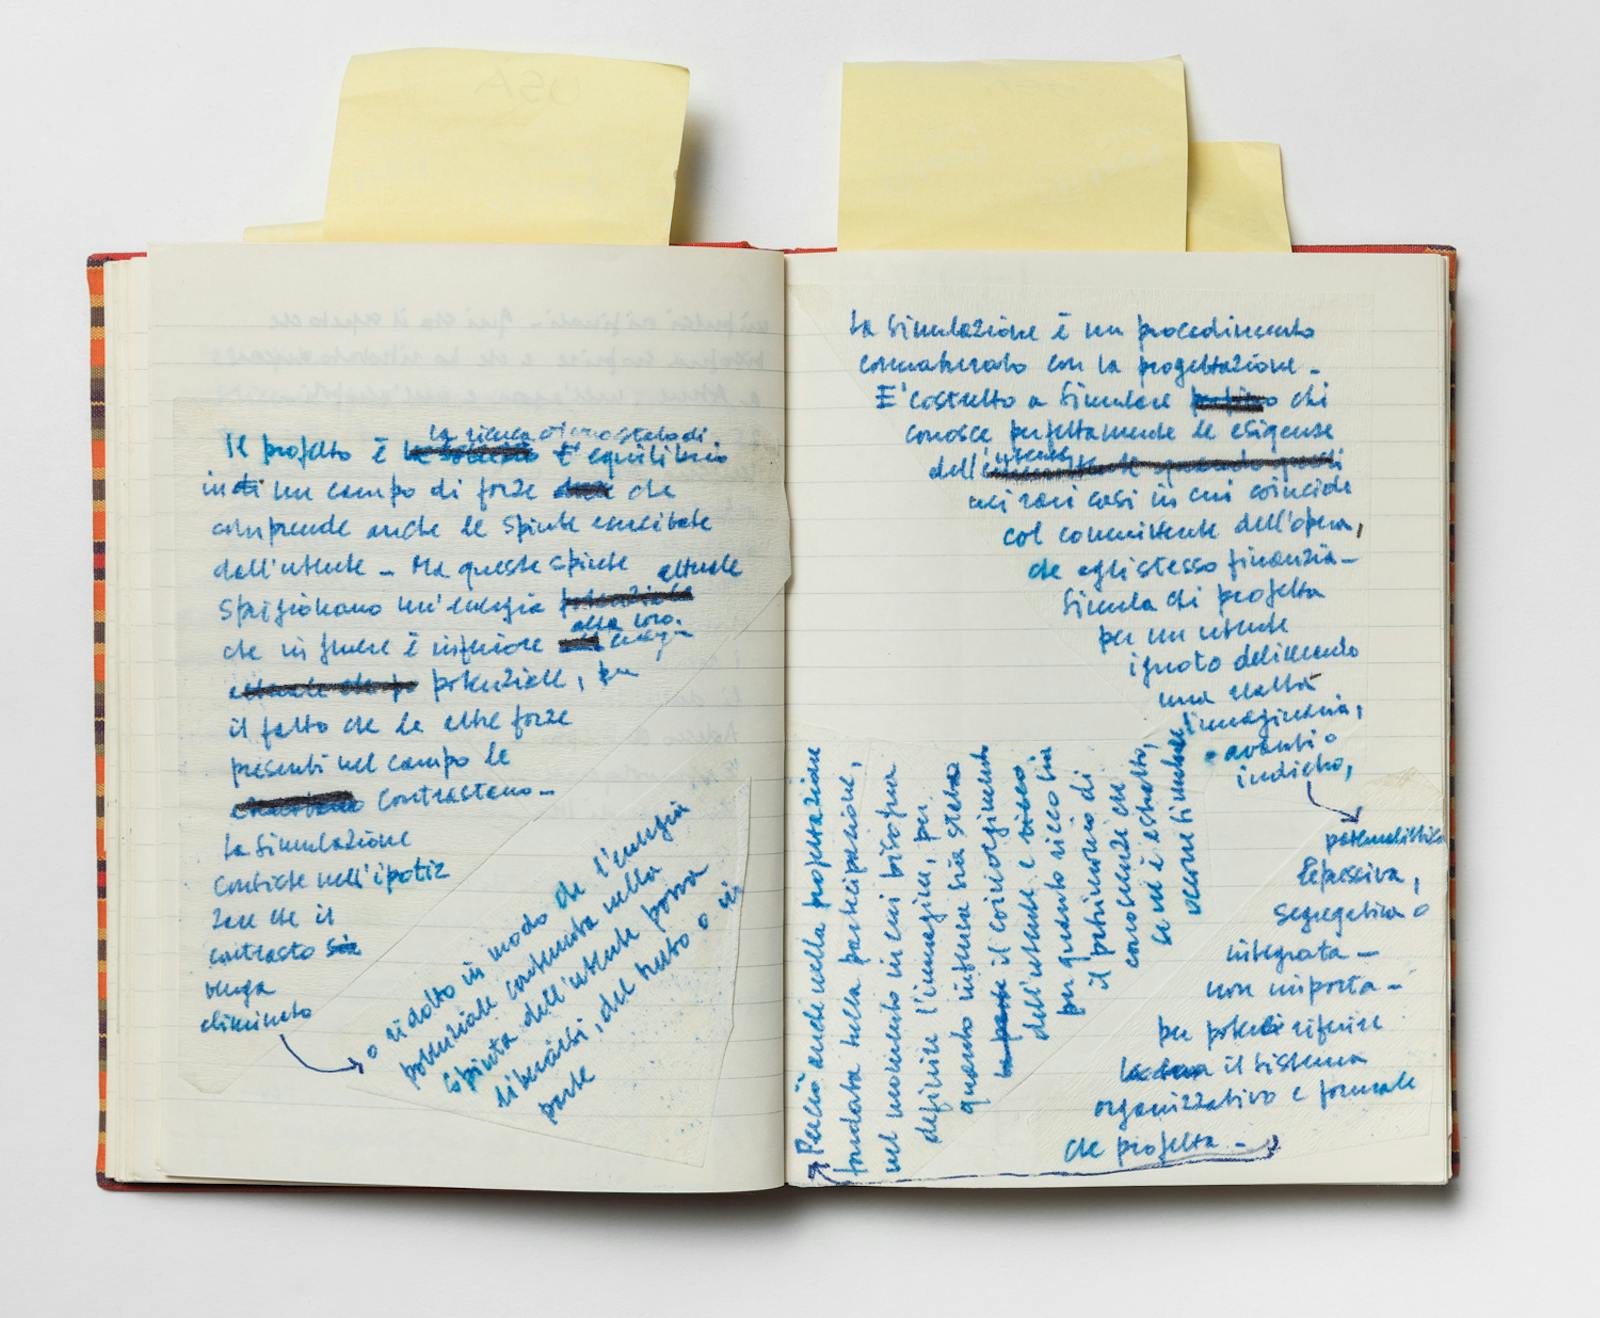 USA
Il progetto è la ricerca di uno stato di
equilibrio
in un campo di forze che
comprende anche le spinte esercitate
dall'utente – Ma queste spinte
sprigionano un'energia attuale
che in genere è inferiore alla loro
energia
potenziale, per
il fatto che le altre forze
presenti nel campo le
contrastano –
La simulazione
consiste nell'ipotiz
zare che il
contrasto
venga
eliminato
o ridotto in modo che l'energia
potenziale contenuta nella
spinta dell'utente possa
liberarsi, del tutto o in
parte
La simulazione è un procedimento
connaturato con la progettazione –
E' costretto a simulare chi
conosce perfettamente le esigenze
dell'utente
nei rari casi in cui coincide
col committente dell'opera,
che egli stesso finanzia –
Simula chi progetta
per un utente
ignoto delineando
una realtà
immaginaria,
avanti o
indietro,
paternalistica
repressiva,
segregativa o
integrata –
non importa –
per potere riferire
il sistema
organizzativo e formale
che progetta –
Perciò anche nella progettazione
fondata sulla partecipazione,
nel momento in cui bisogna
definire l'immagine, per
quanto intenso sia stato
il coinvolgimento
dell'utente e
per quanto ricco sia
il patrimonio di
conoscenze che
se ne è estratto,
occorre simulare